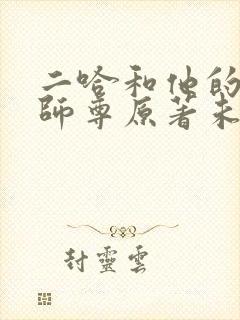 二哈和他的
師尊原著未
封靈雲